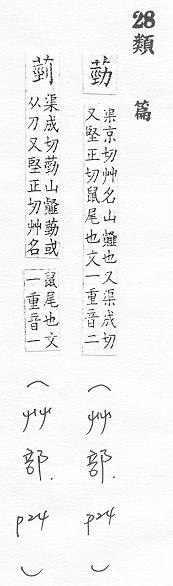 28類篇
葝
渠京切艸名山䪥也又渠成切
又堅正切鼠尾也文一重音二
(艸部.P24)
渠成切葝山䪥葝或
从刀又堅正切艸名
鼠尾也文
一重音一
(艸部.P24)